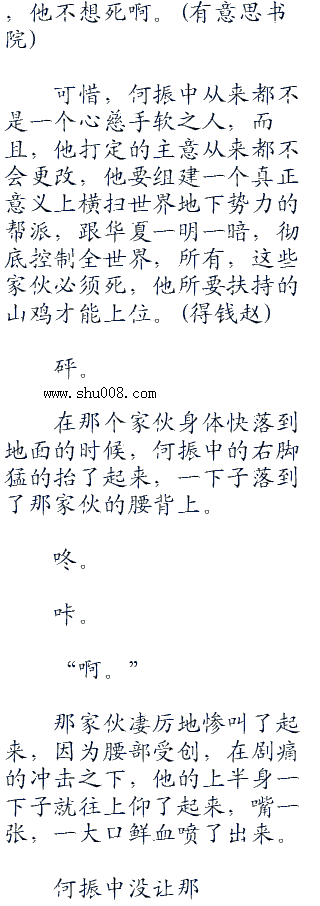 ，他不想死啊。(有意思书
院)
可惜，何振中从来都不
是一个心慈手软之人，而
且，他打定的主意从来都不
会更改，他要组建一个真正
意义上横扫世界地下势力的
帮派，跟华夏一明一暗，彻
底控制全世界，所有，这些
家伙必须死，他所要扶持的
山鸡才能上位。(得钱赵)
砰。
www.shu008.com
在那个家伙身体快落到
地面的时候，何振中的右脚
猛的抬了起来，一下子落到
了那家伙的腰背上。
咚。
咔。
“啊。”
那家伙凄厉地惨叫了起
来，因为腰部受创，在剧痛
的冲击之下，他的上半身一
下子就往上仰了起来，嘴一
张，一大口鲜血喷了出来。
何振中没让那